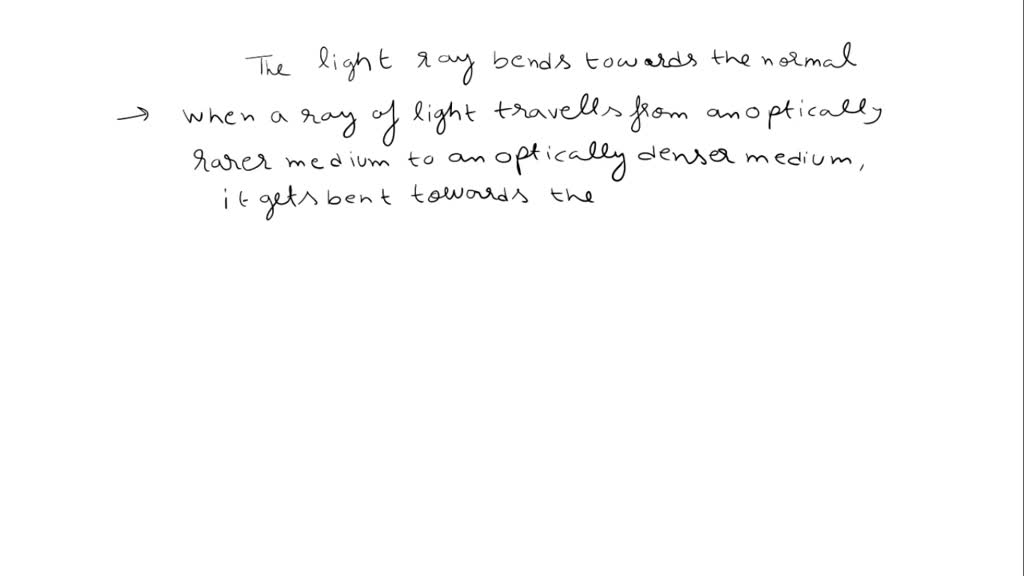 The light ray bends towards the normal
→ when a ray of light travells from an optically
rarer medium to an optically denser medium,
it gets bent towards the